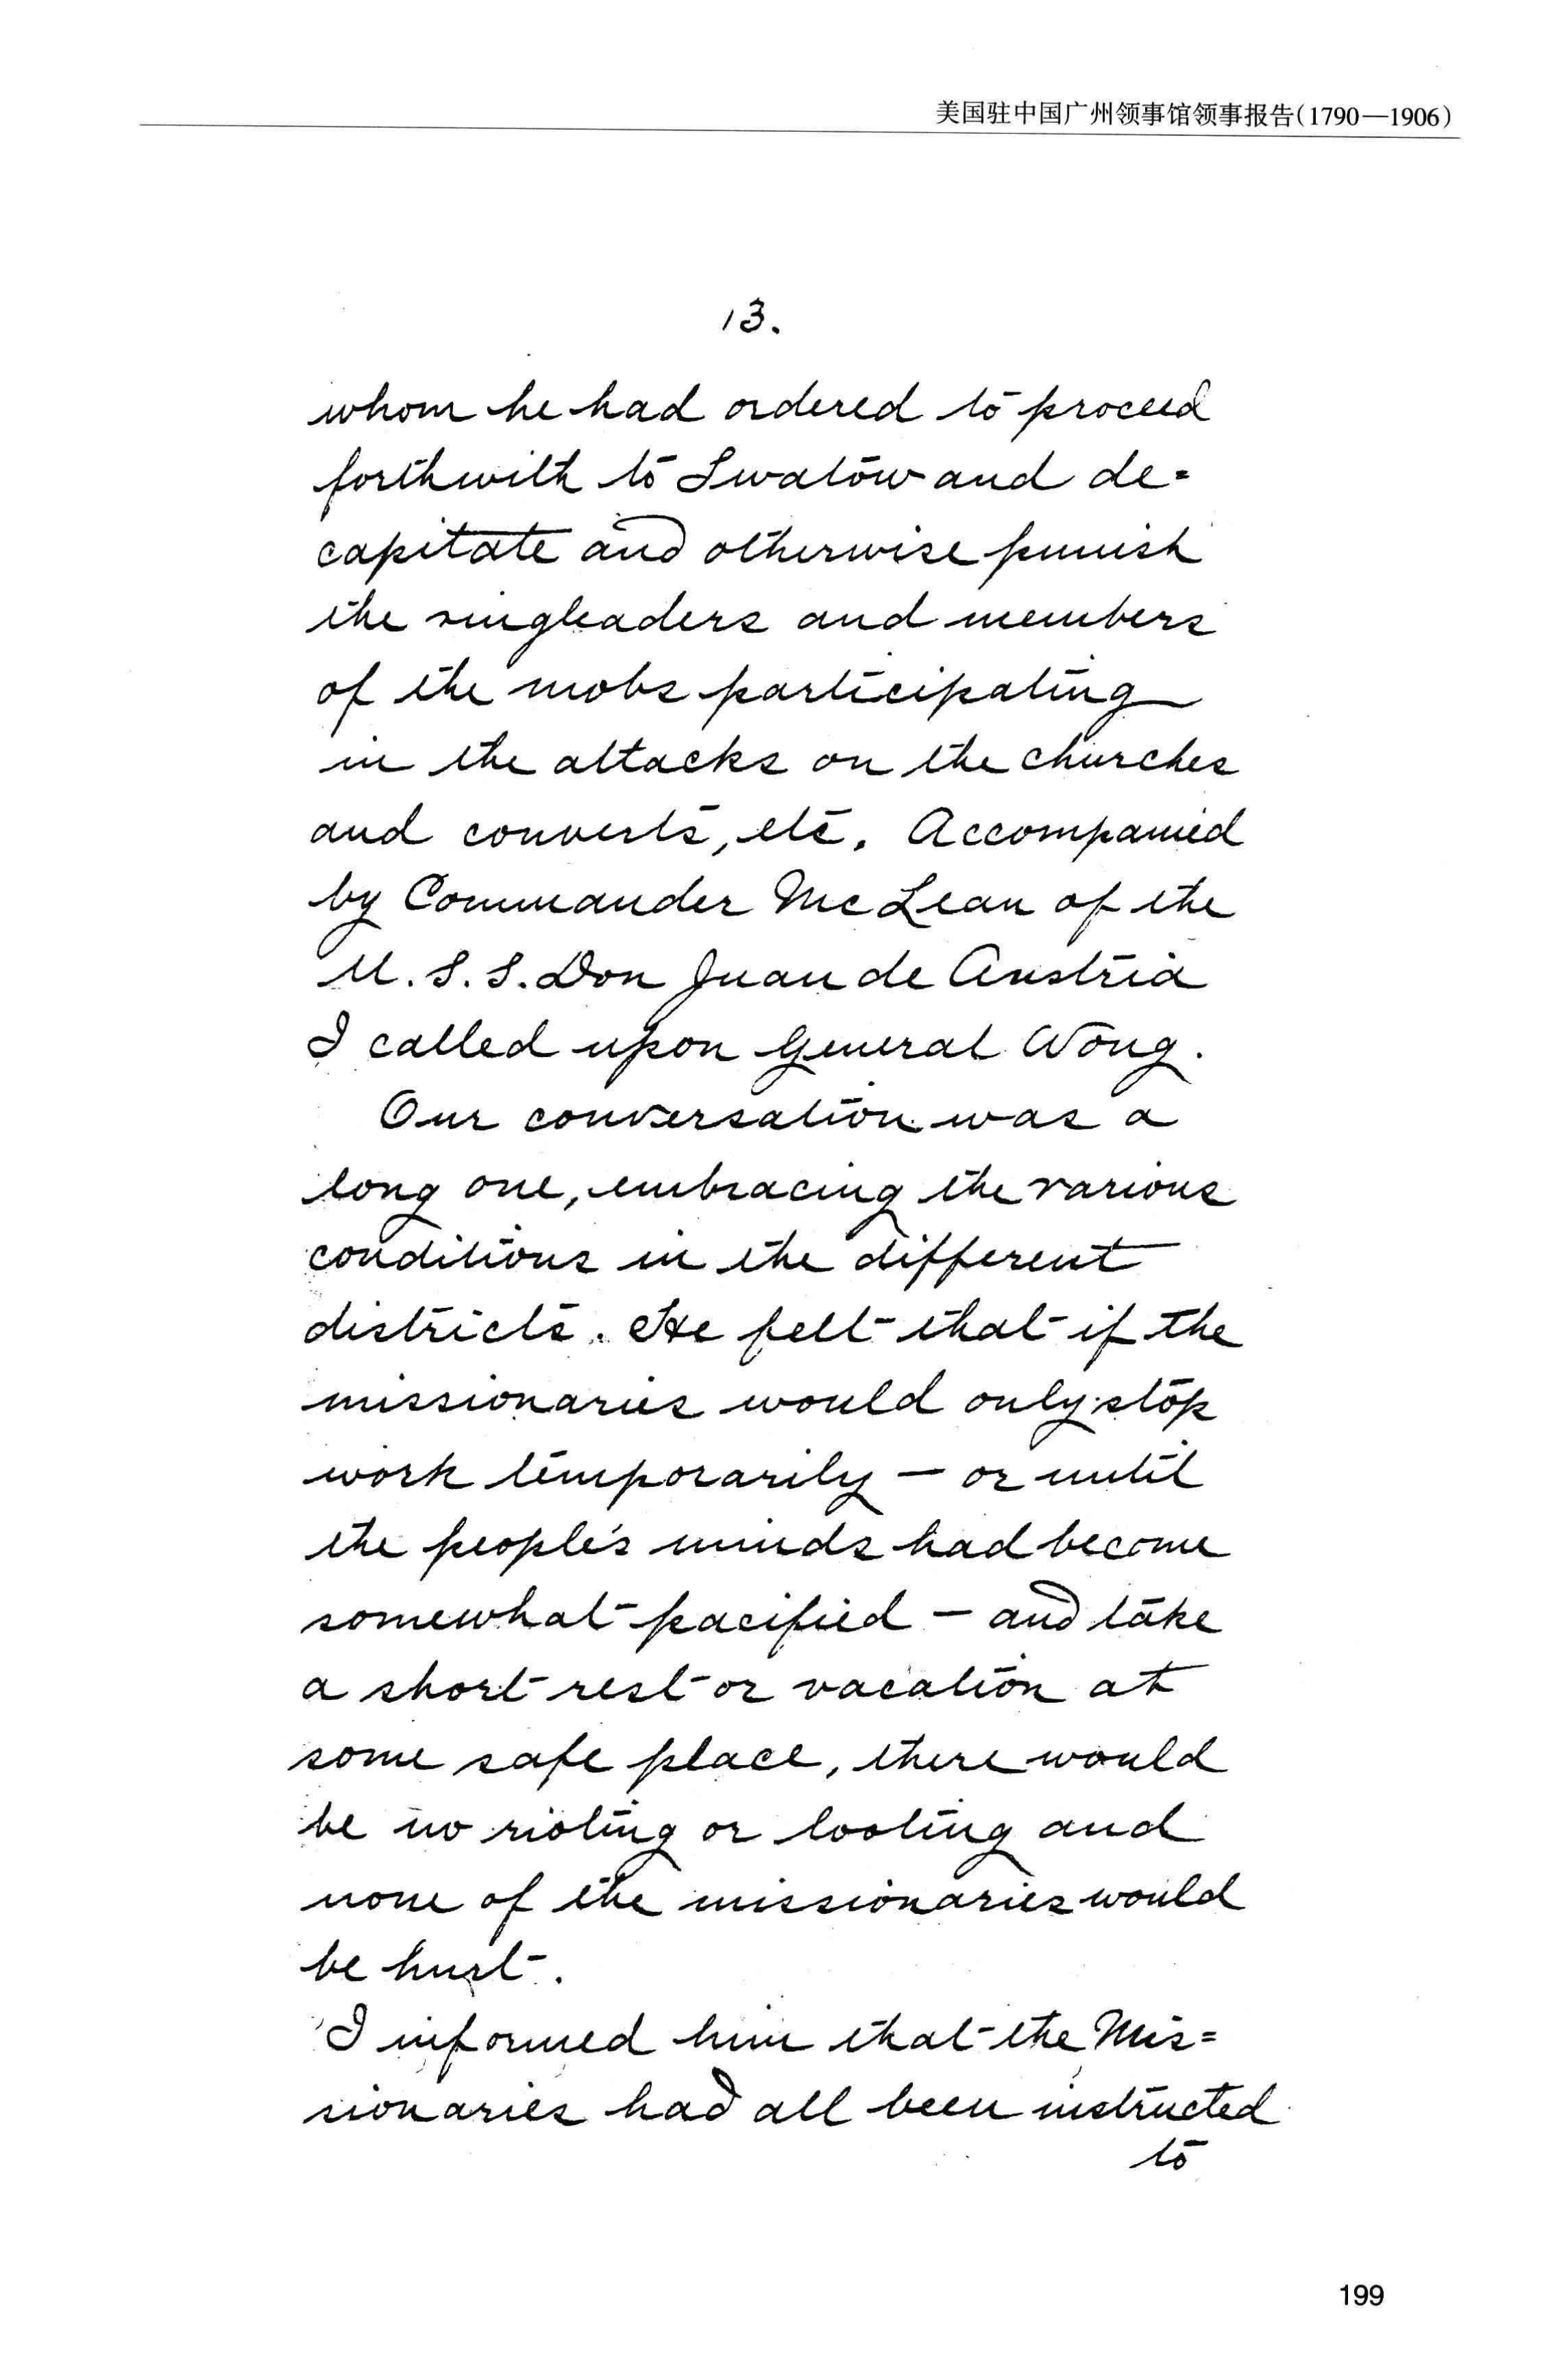 美国驻中国广州领事馆领事报告(1790—1906)
13.
whom he had ordered to proceed
forthwith to Swatow and de=
capitate and otherwise punish
the ringleaders and members
of the mobs participating
in the attacks on the churches
and converts, etc. Accompanied
by Commander McLean of the
U. S. S. Don Juan de Austria
I called upon General Wong.
Our conversation was a
long one, embracing the various
conditions in the different
districts. He felt that if the
missionaries would only stop
work temporarily — or until
the people's minds had become
somewhat pacified — and take
a short rest or vacation at
some safe place, there would
be no rioting or looting and
none of the missionaries would
be hurt.
I informed him that the Mis=
sionaries had all been instructed
to
199